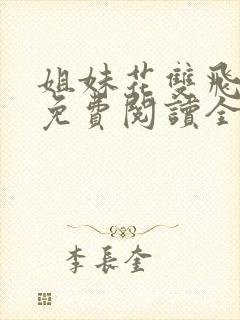 姐妹花雙飛
免費閱讀全
李長奎